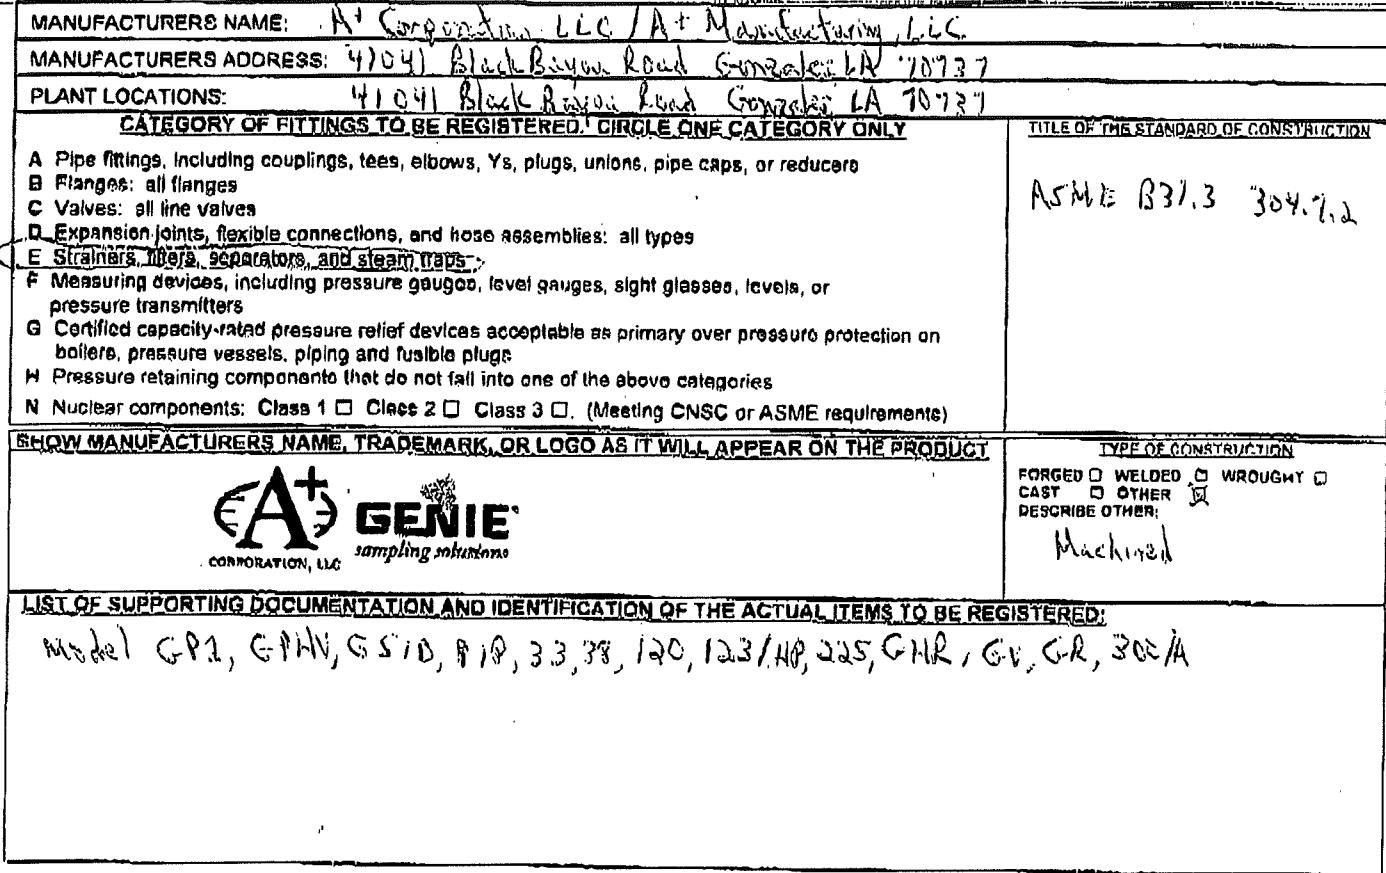 MANUFACTURERS NAME: A+ Corporation LLC / A+ Manufacturing, LLC
MANUFACTURERS ADDRESS: 41041 Black Bayou Road Gonzales LA 70737
PLANT LOCATIONS: 41041 Black Bayou Road Gonzales LA 70737
CATEGORY OF FITTINGS TO BE REGISTERED. CIRCLE ONE CATEGORY ONLY
A Pipe fittings, including couplings, tees, elbows, Ys, plugs, unions, pipe caps, or reducers
B Flanges: all flanges
C Valves: all line valves
D Expansion joints, flexible connections, and hose assemblies: all types
E Strainers, filters, separators, and steam traps
F Measuring devices, including pressure gauges, level gauges, sight glasses, levels, or
pressure transmitters
G Certified capacity-rated pressure relief devices acceptable as primary over pressure protection on
boilers, pressure vessels, piping and fusible plugs
H Pressure retaining components that do not fall into one of the above categories
N Nuclear components: Class 1 ☐ Class 2 ☐ Class 3 ☐. (Meeting CNSC or ASME requirements)
TITLE OF THE STANDARD OF CONSTRUCTION
ASME B31.3 304.7.2
SHOW MANUFACTURERS NAME, TRADEMARK, OR LOGO AS IT WILL APPEAR ON THE PRODUCT
A+
CORPORATION, LLC
GENIE
sampling solutions
TYPE OF CONSTRUCTION
FORGED ☐ WELDED ☐ WROUGHT ☐
CAST ☐ OTHER ☑
DESCRIBE OTHER:
Machined
LIST OF SUPPORTING DOCUMENTATION AND IDENTIFICATION OF THE ACTUAL ITEMS TO BE REGISTERED:
Model GP2, GPHV, 33, 38, 120, 123/HP, 225, GHR, GV, GR,